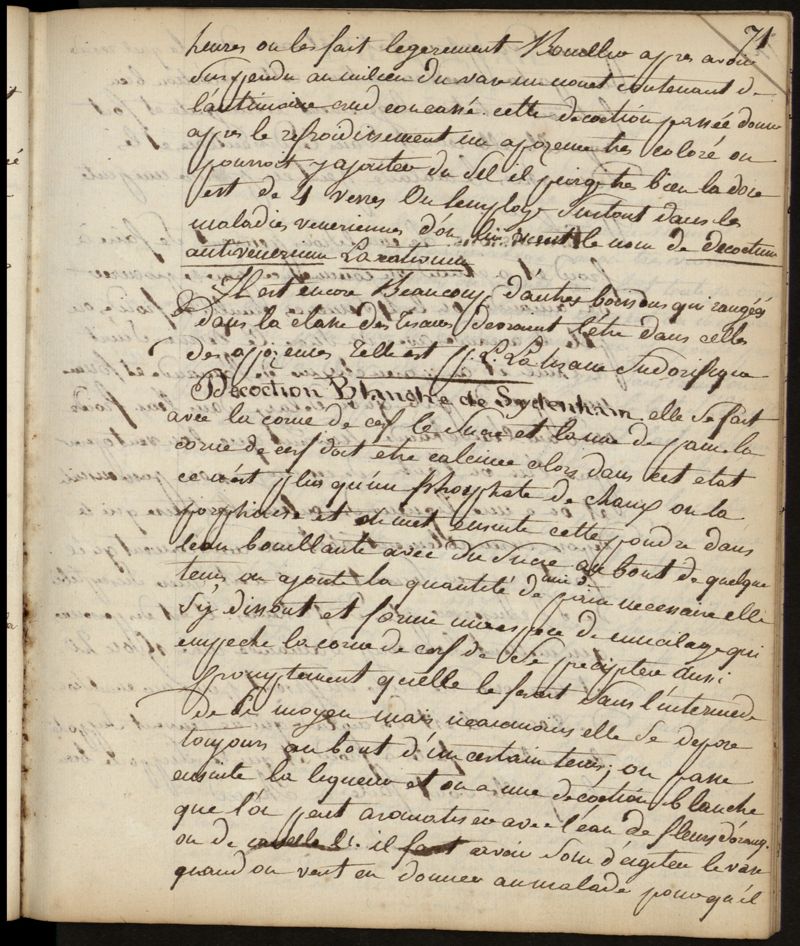 71
heures on les fait legerement Bouellir apres avoir
suspendu au milieu du vase un nouet contenant de
l'antimoine crud concassé. cette decoction passée donne
apres le refroidissement un apozeme tres coloré on
pourroit y ajouter du sel il purge tres bien la dose
est de 4 verres On l'employe surtout dans les
maladies veneriennes d'ou lui vient le nom de decoctum
antivenereum Laxativum
Il est encore Beaucoup d'autres boissons qui rangées
dans la classe des tisanes devroient l'être dans celles
des apozemes telle est la tisane sudorifique
Decoction Blanche de Sydenham elle se fait
avec la corne de cerf le sucre et la mie de pain. la
corne de cerf doit etre calcinée alors dans cet etat
ce n'est plus qu'un phosphate de chaux on la
porphirise et on met ensuite cette poudre dans
l'eau bouillante avec du sucre au bout de quelque
tems on ajout la quantité de mie de pain necessaire elle
s'y dissout et forme une espece de mucilage qui
empeche la corne de cerf de se precipiter aussi
promptement qu'elle le feroit sans l'intermede
de ce moyen mais neanmoins elle se depose
toujours au bout d'un certain tems; on passe
ensuite la liqueur et on a une decoction blanche
que l'on peut aromatiser avec l'eau de fleurs d'orang.
ou de canelle &c. il faut avoir soin d'agiter le vase
quand on veut en donner au malade pour qu'il